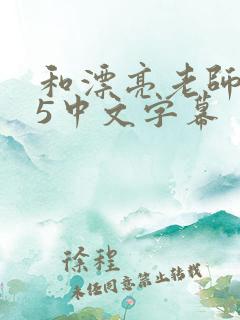 和漂亮老師
5中文字幕
徐程
未经同意禁止转载